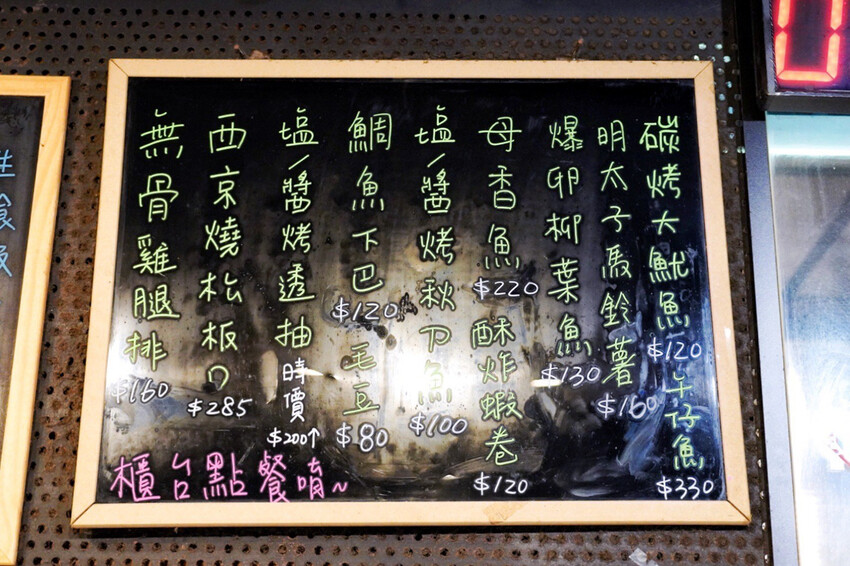 碳烤大魷魚 $120 午仔魚 $330
明太子馬鈴薯 $160
爆卵柳葉魚 $130
母香魚 $220 酥炸蝦卷 $120
塩/醬烤秋刀魚 $100
鯛魚下巴 $120 毛豆 $80
塩/醬烤透抽 時價 $200↑
西京燒松板 $285
無骨雞腿排 $160
櫃台點餐唷~
0